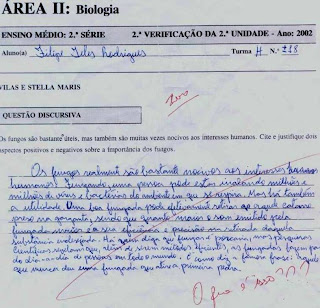 ÁREA II: Biologia
ENSINO MÉDIO: 2.ª SÉRIE 2.ª VERIFICAÇÃO DA 2.ª UNIDADE - Ano: 2002
Aluno(a) Filipe Teles Rodrigues Turma H N.º 218
VILAS E STELLA MARIS
Zero
QUESTÃO DISCURSIVA
Os fungos são bastante úteis, mas também são muitas vezes nocivos aos interesses humanos. Cite e justifique dois
aspectos positivos e negativos sobre a importância dos fungos.
Os fungos realmente são bastante nocivos aos interesses
humanos! Fungando, uma pessoa pode estar inalando milhões e
milhões de vírus e bactérias do ambiente em que se respira. Mas há também
a utilidade. Uma boa fungada pode efetivamente retirar aquele catarro
preso na garganta, sendo que quanto maior o som emitido pela
fungada maior a sua eficiência e precisão na retirada daquela
substância indesejada. Há quem diga que fungar é porcaria, mas pesquisas
científicas revelaram que, além de serem métodos eficientes, as fungadas fazem parte
do dia-a-dia de pessoas em todo o mundo. E como diz a famosa frase: aquele
que nunca deu uma fungada que atire a primeira pedra.
O que é isso???